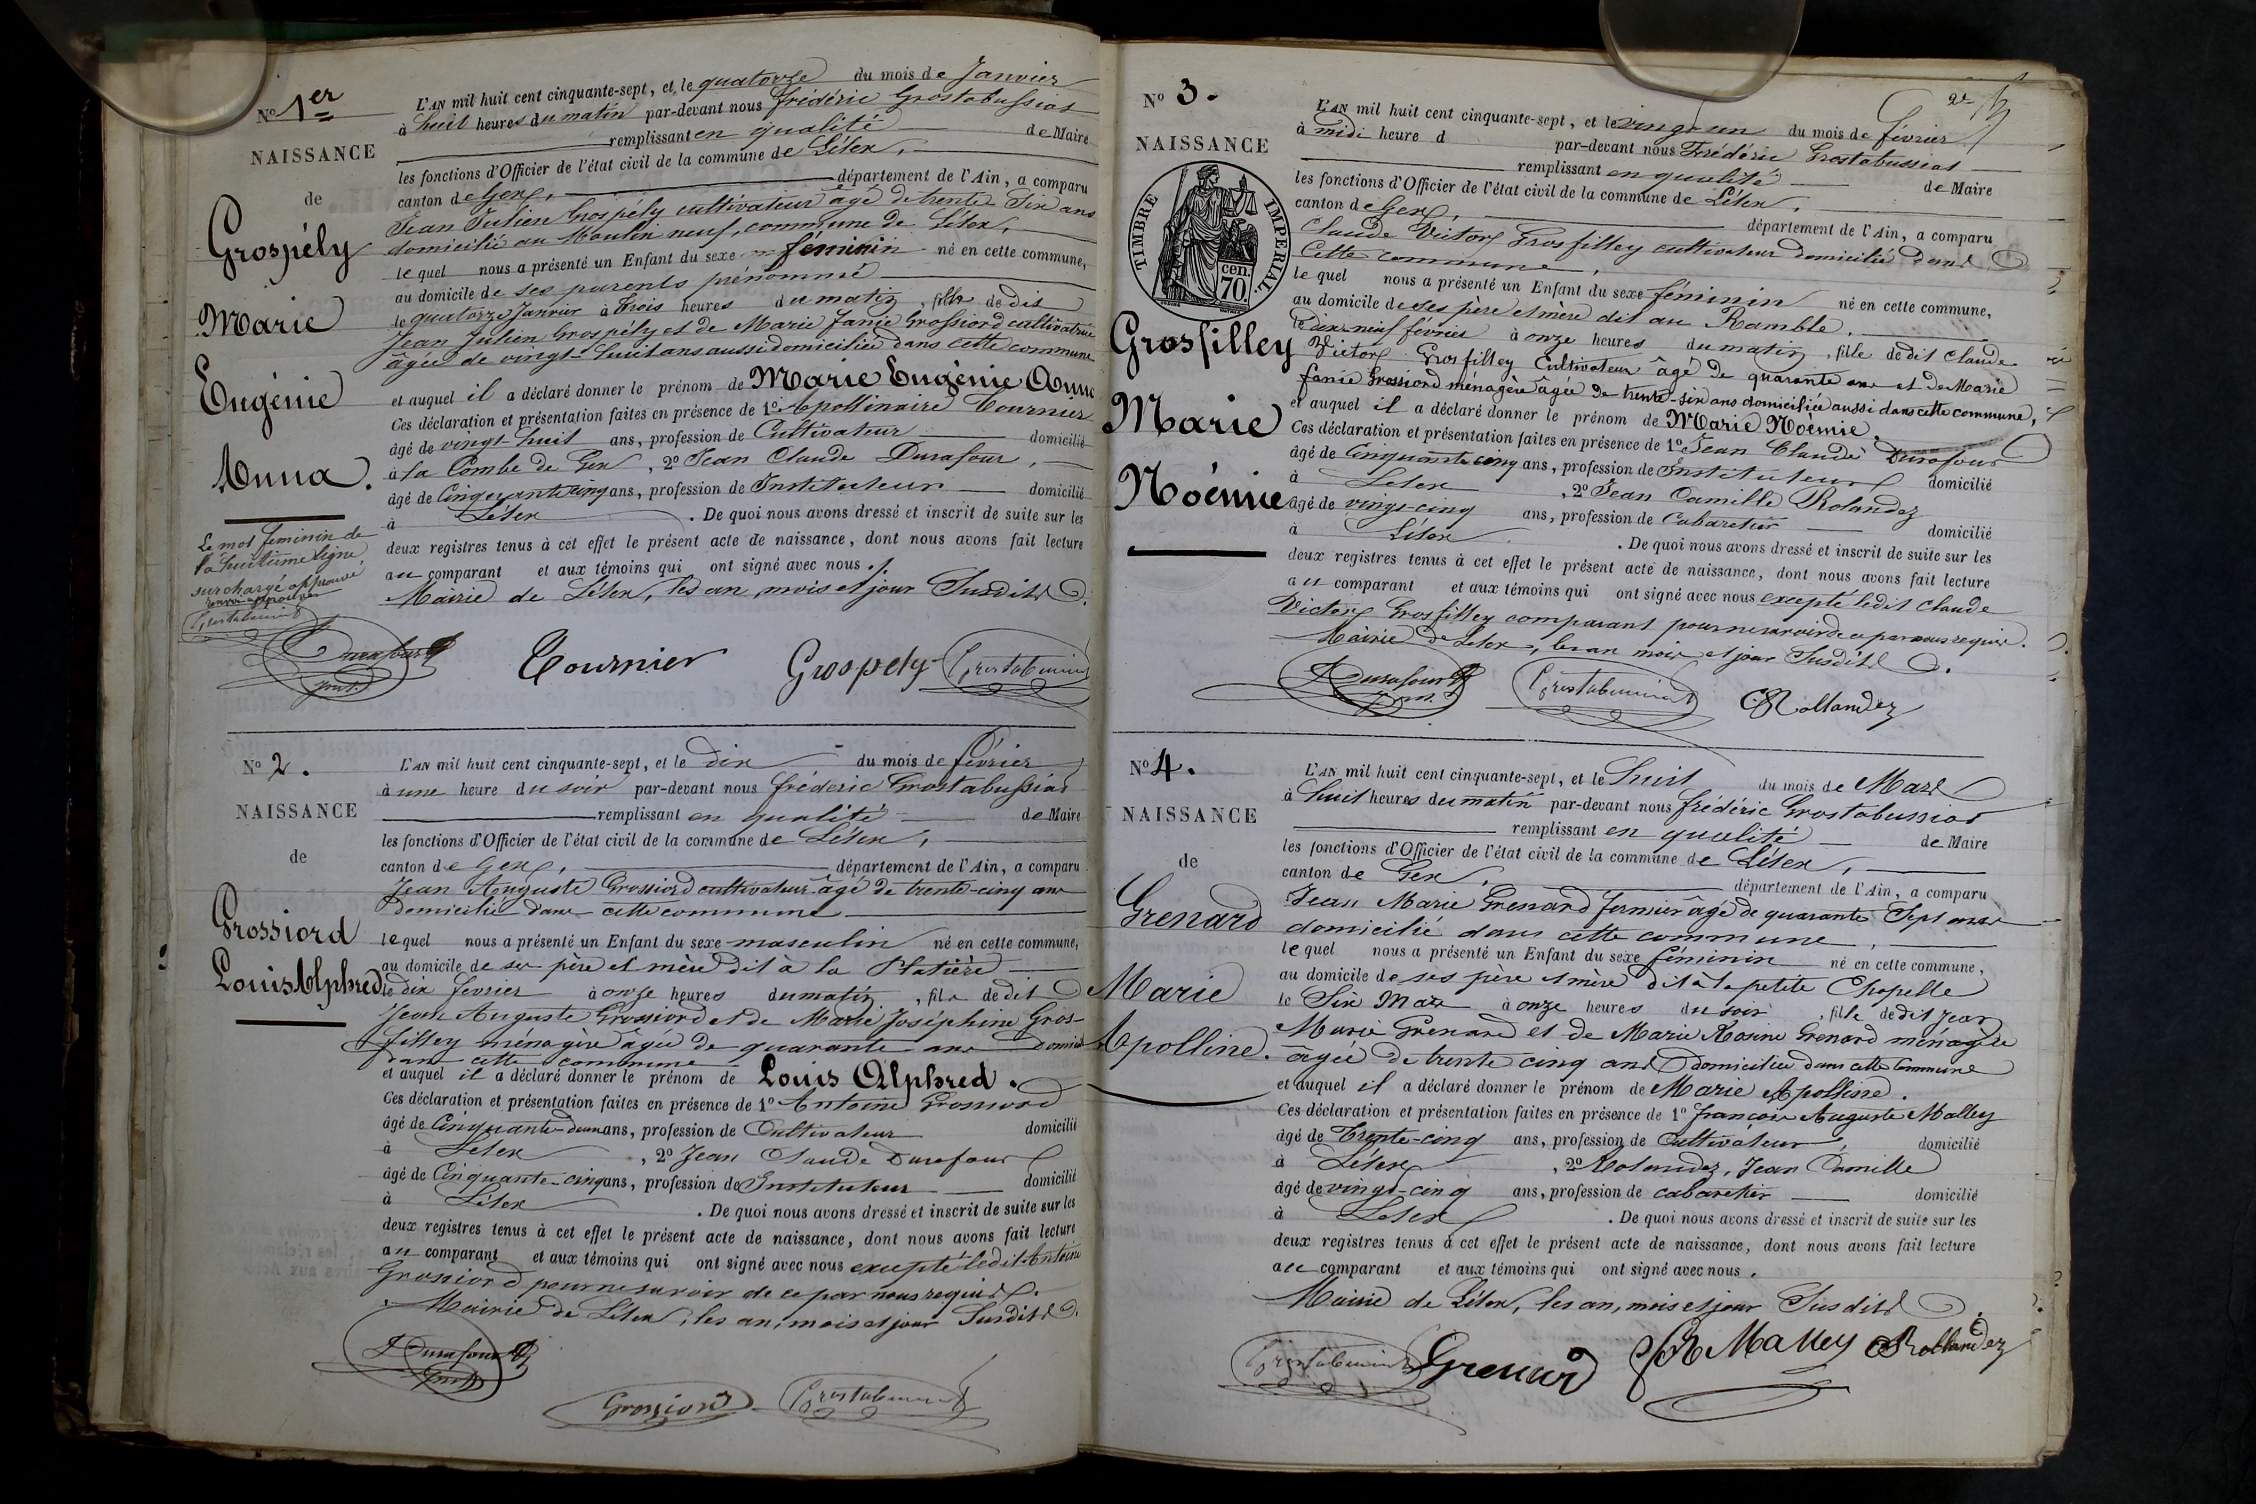 No 1er
NAISSANCE
de
Grospély
Marie
Eugénie
Anna.
Le mot féminin de
la huitième ligne
surchargé approuvé
L'AN mil huit cent cinquante-sept, et le quatorze du mois de Janvier
à huit heures du matin par-devant nous frédéric Grostabussiat
remplissant en qualité de Maire
les fonctions d'Officier de l'état civil de la commune de Lélex,
canton de Gex, département de l'Ain, a comparu
Jean Julien Grospély cultivateur âgé de trente Six ans
domicilié au Moulin neuf, commune de Lélex,
lequel nous a présenté un Enfant du sexe féminin né en cette commune,
au domicile de ses parents prénommé
le quatorze Janvier à trois heures du matin, fille de dit
Jean Julien Grospély et de Marie Janie Grossiord cultivatrice
âgée de vingt huit ans aussi domiciliée dans cette commune
et auquel il a déclaré donner le prénom de Marie Eugénie Anna
Ces déclaration et présentation faites en présence de 1º Apollinaire Tournier
âgé de vingt huit ans, profession de Cultivateur domicilié
à la Combe de Gex, 2º Jean Claude Durafour,
âgé de Cinquante cinq ans, profession de Instituteur domicilié
à Lélex . De quoi nous avons dressé et inscrit de suite sur les
deux registres tenus à cet effet le présent acte de naissance, dont nous avons fait lecture
au comparant et aux témoins qui ont signé avec nous.
Mairie de Lélex, les an, mois et jour Susdits
Durafour Tournier Grospely Grostabussiat
No 2.
NAISSANCE
de
Grossiord
Louis Alphred
L'AN mil huit cent cinquante-sept, et le dix du mois de février
à une heure du soir par-devant nous frédéric Grostabussiat
remplissant en qualité de Maire
les fonctions d'Officier de l'état civil de la commune de Lélex,
canton de Gex, département de l'Ain, a comparu
Jean Auguste Grossiord cultivateur âgé de trente-cinq ans
domicilié dans cette commune
lequel nous a présenté un Enfant du sexe masculin né en cette commune,
au domicile de ses père et mère dit à la Platière
le dix fevrier à onze heures du matin, fils de dit
Jean Auguste Grossiord et de Marie Joséphine Gros-
filley ménagère âgée de quarante ans
dans cette commune
et auquel il a déclaré donner le prénom de Louis Alphred.
Ces déclaration et présentation faites en présence de 1º Antoine Grossiord
âgé de Cinquante-deux ans, profession de Cultivateur domicilié
à Lelex, 2º Jean Claude Durafour
âgé de Cinquante-cinq ans, profession de Instituteur domicilié
à Lélex . De quoi nous avons dressé et inscrit de suite sur les
deux registres tenus à cet effet le présent acte de naissance, dont nous avons fait lecture
au comparant et aux témoins qui ont signé avec nous excepté ledit Antoine
Grossiord pour ne savoir de ce par nous requis.
Mairie de Lélex, les an, mois et jour Susdits
Durafour
Grossiord Grostabussiat
No 3.
NAISSANCE
TIMBRE IMPERIAL.
cen.
70.
Grosfilley
Marie
Noémie
L'AN mil huit cent cinquante-sept, et le vingt un du mois de février
à midi heure d par-devant nous Frédéric Grostabussiat
remplissant en qualité de Maire
les fonctions d'Officier de l'état civil de la commune de Lélex,
canton de Gex, département de l'Ain, a comparu
Claude Victor Grosfilley cultivateur domicilié dans
Cette commune,
lequel nous a présenté un Enfant du sexe féminin né en cette commune,
au domicile de ses père et mère dit au Ramble.
le dix-neuf février à onze heures du matin, fille de dit Claude
Victor Grosfilley Cultivateur âgé de quarante ans et de Marie
fanie Grossiord ménagère âgée de trente-six ans domiciliée aussi dans cette commune,
et auquel il a déclaré donner le prénom de Marie Noémie.
Ces déclaration et présentation faites en présence de 1º Jean Claude Durafour
âgé de Cinquante cinq ans, profession de Instituteur domicilié
à Lelex, 2º Jean Camille Rolandez
âgé de vingt-cinq ans, profession de Cabaretier domicilié
à Lélex . De quoi nous avons dressé et inscrit de suite sur les
deux registres tenus à cet effet le présent acte de naissance, dont nous avons fait lecture
au comparant et aux témoins qui ont signé avec nous excepté ledit Claude
Victor Grosfilley comparant pour ne savoir de ce par nous requis.
Mairie de Lelex, les an mois et jour Susdits.
Durafour Grostabussiat Rollandez
No 4.
NAISSANCE
de
Grenard
Marie
Apolline.
L'AN mil huit cent cinquante-sept, et le huit du mois de Mars
à huit heures du matin par-devant nous frédéric Grostabussiat
remplissant en qualité de Maire
les fonctions d'Officier de l'état civil de la commune de Lélex,
canton de Gex, département de l'Ain, a comparu
Jean Marie Grenard fermier âgé de quarante Sept ans
domicilié dans cette commune,
lequel nous a présenté un Enfant du sexe féminin né en cette commune,
au domicile de ses père et mère dit à la petite Chapelle
le Six Mars à onze heures du soir, fille de dit Jean
Marie Grenard et de Marie Rosine Grenard ménagère
âgée de trente cinq ans Domiciliée dans cette Commune
et auquel il a déclaré donner le prénom de Marie Apolline.
Ces déclaration et présentation faites en présence de 1º françois Auguste Malley
âgé de Trente-cinq ans, profession de Cultivateur, domicilié
à Lélex, 2º Rolandez, Jean Camille
âgé de vingt-cinq ans, profession de cabaretier domicilié
à Lelex . De quoi nous avons dressé et inscrit de suite sur les
deux registres tenus à cet effet le présent acte de naissance, dont nous avons fait lecture
au comparant et aux témoins qui ont signé avec nous.
Mairie de Lélex, les an, mois et jour Susdits.
Grostabussiat Grenard Malley Rollandez